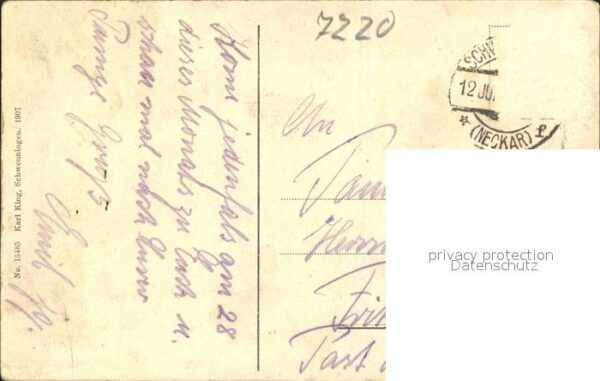 7220
Kome jedenfals am 28
dieses Monats zu Euch u.
schau mal nach Eurer
Gruss
Emil
No. 15485 Karl King, Schwenningen, 1907
SCHW
12 JU
* (NECKAR) f
An
Herrn
Frit
Post
privacy protection
Datenschutz